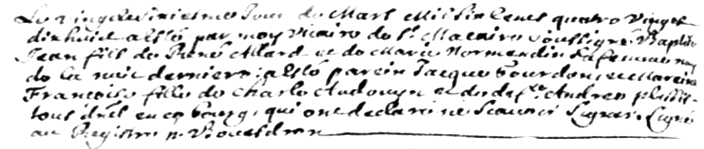 Le vingt et unieme Jour de Mars Mil Six Cens quatre Vingts
dixhuit a Esté par moy Vicaire de St Macaire soussigné Baptise
Jean fils de René Allard et de Marie Normendin sa femme nay
de la nuit derniere, a Esté parein Jacque Gourdon, et Mareine
Françoise fille de Charle Audouyn et de def.te Andree
tous d'el en ce bourg, qui ont declaré ne Scavoir Signer. Signé
au Registre